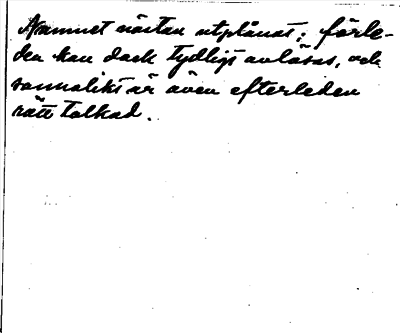 Namnet nästan utplånat; förle-
den kan dock tydligt avläsas, och
sannolikt är även efterleden
rätt tolkad.